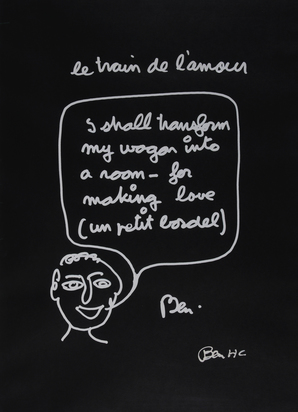 le train de l'amour
I shall transform
my wagon into
a room - for
making love
(un petit bordel)
Ben.
Ben HC